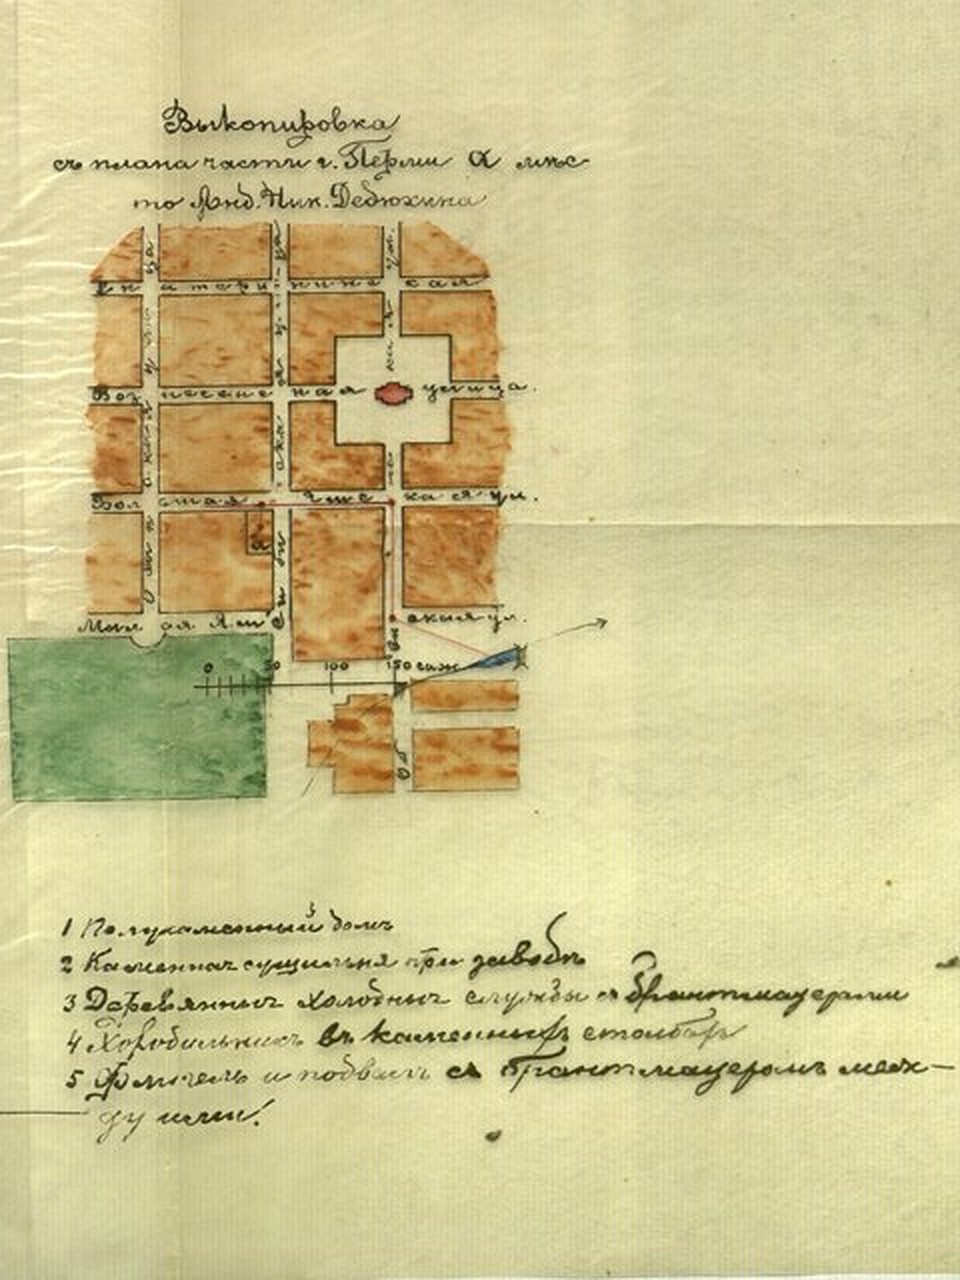 Выкопировка
съ плана части г. Перми а мѣс-
то Анд. Ник. Дедюхина
Екатерининская
Вознесенская улица.
Большая Ямская ул.
а
Малая Ямская ул.
0 50 100 150 саж
1 Полукаменный домъ
2 Каменная сушильня при заводѣ
3 Деревянныя холодныя службы съ брантмауерами
4 въ каменныхъ столбахъ
5 Флигель и подвалъ съ брантмауеромъ меж-
ду ими!